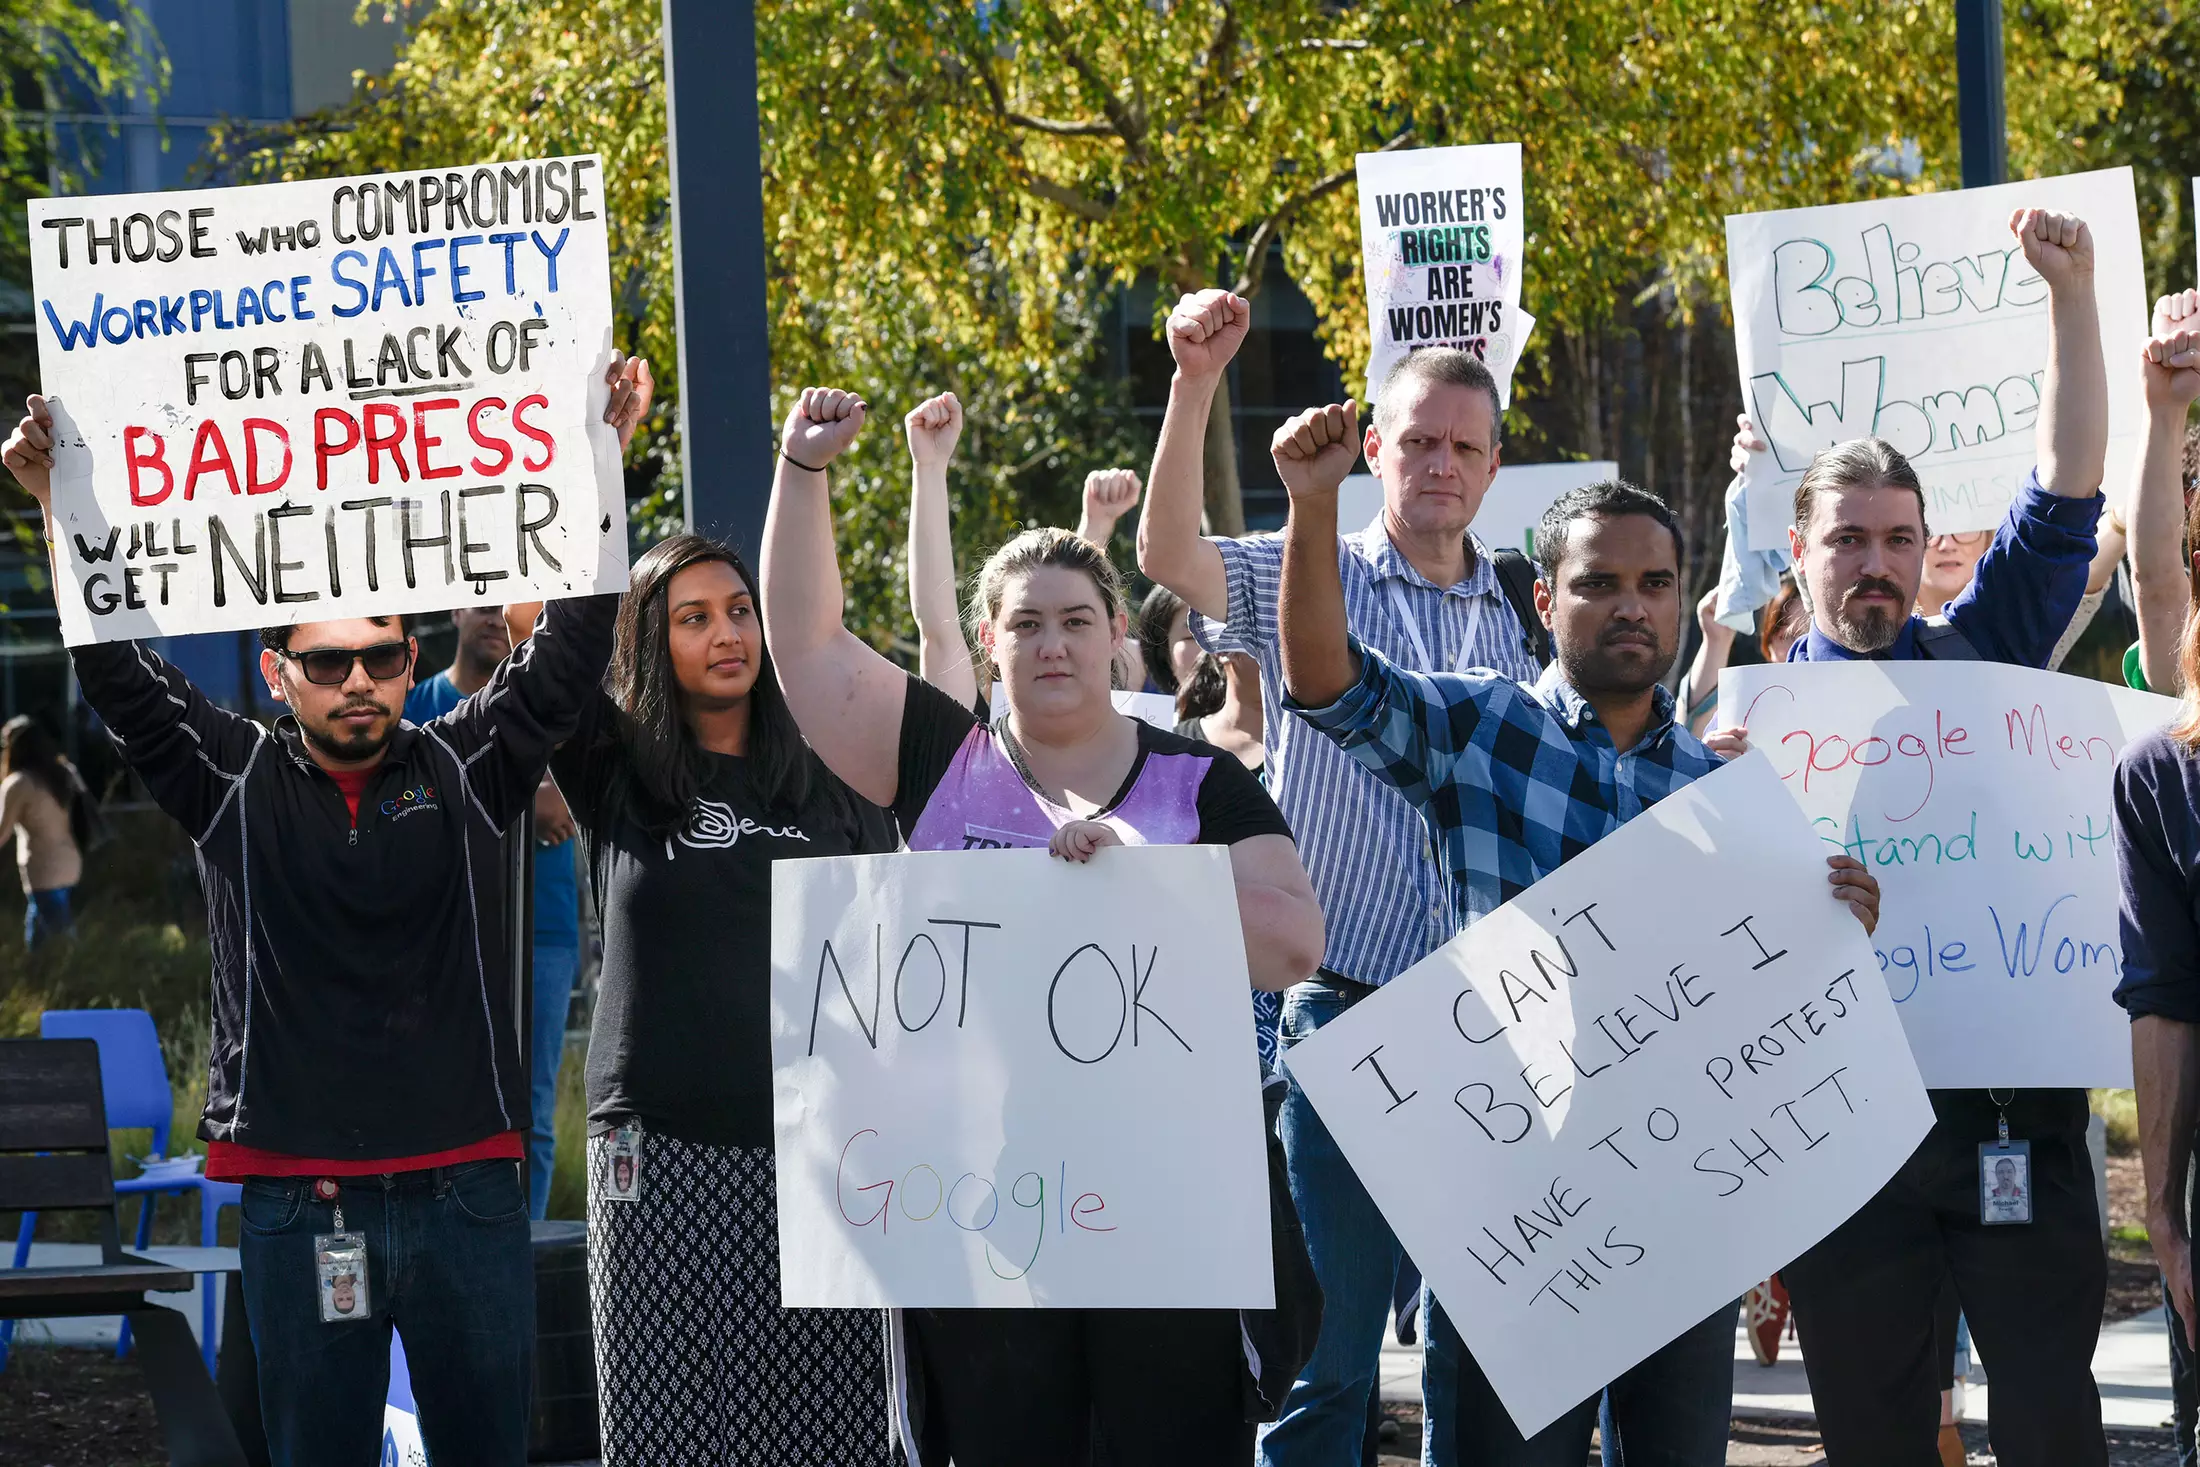 THOSE WHO COMPROMISE
WORKPLACE SAFETY
FOR A LACK OF
BAD PRESS
WILL
GET NEITHER
WORKER'S
#RIGHTS
ARE
WOMEN'S
RIGHTS
Believe
Women
Google
Engineering
Peru
NOT OK
Google
I CAN'T
BELIEVE I
HAVE TO PROTEST
THIS SHIT.
Google Men
Stand with
Google Wom
Michael